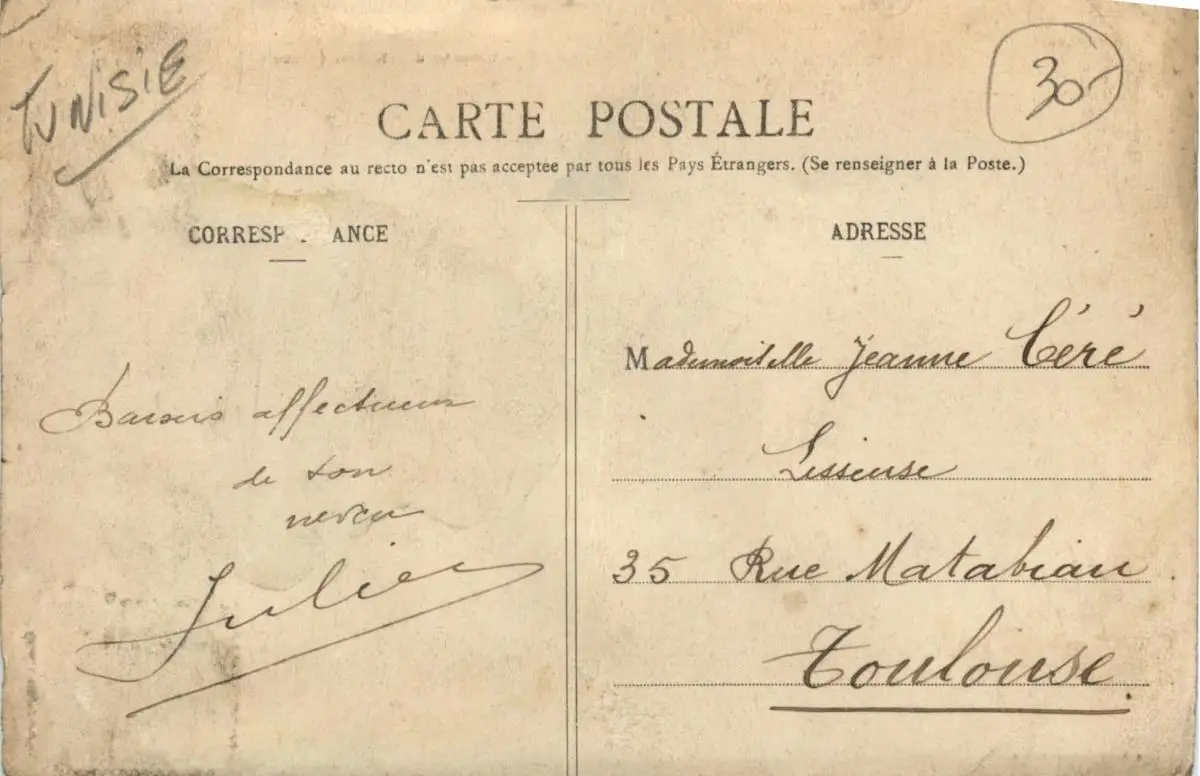 TUNISIE
30-
CARTE POSTALE
La Correspondance au recto n'est pas acceptee par tous les Pays Étrangers. (Se renseigner à la Poste.)
CORRESP ANCE
ADRESSE
Baisers affectueux
de ton
neveu
Julien
Mademoiselle Jeanne Céré
Lisseuse
35 Rue Matabiau
Toulouse.